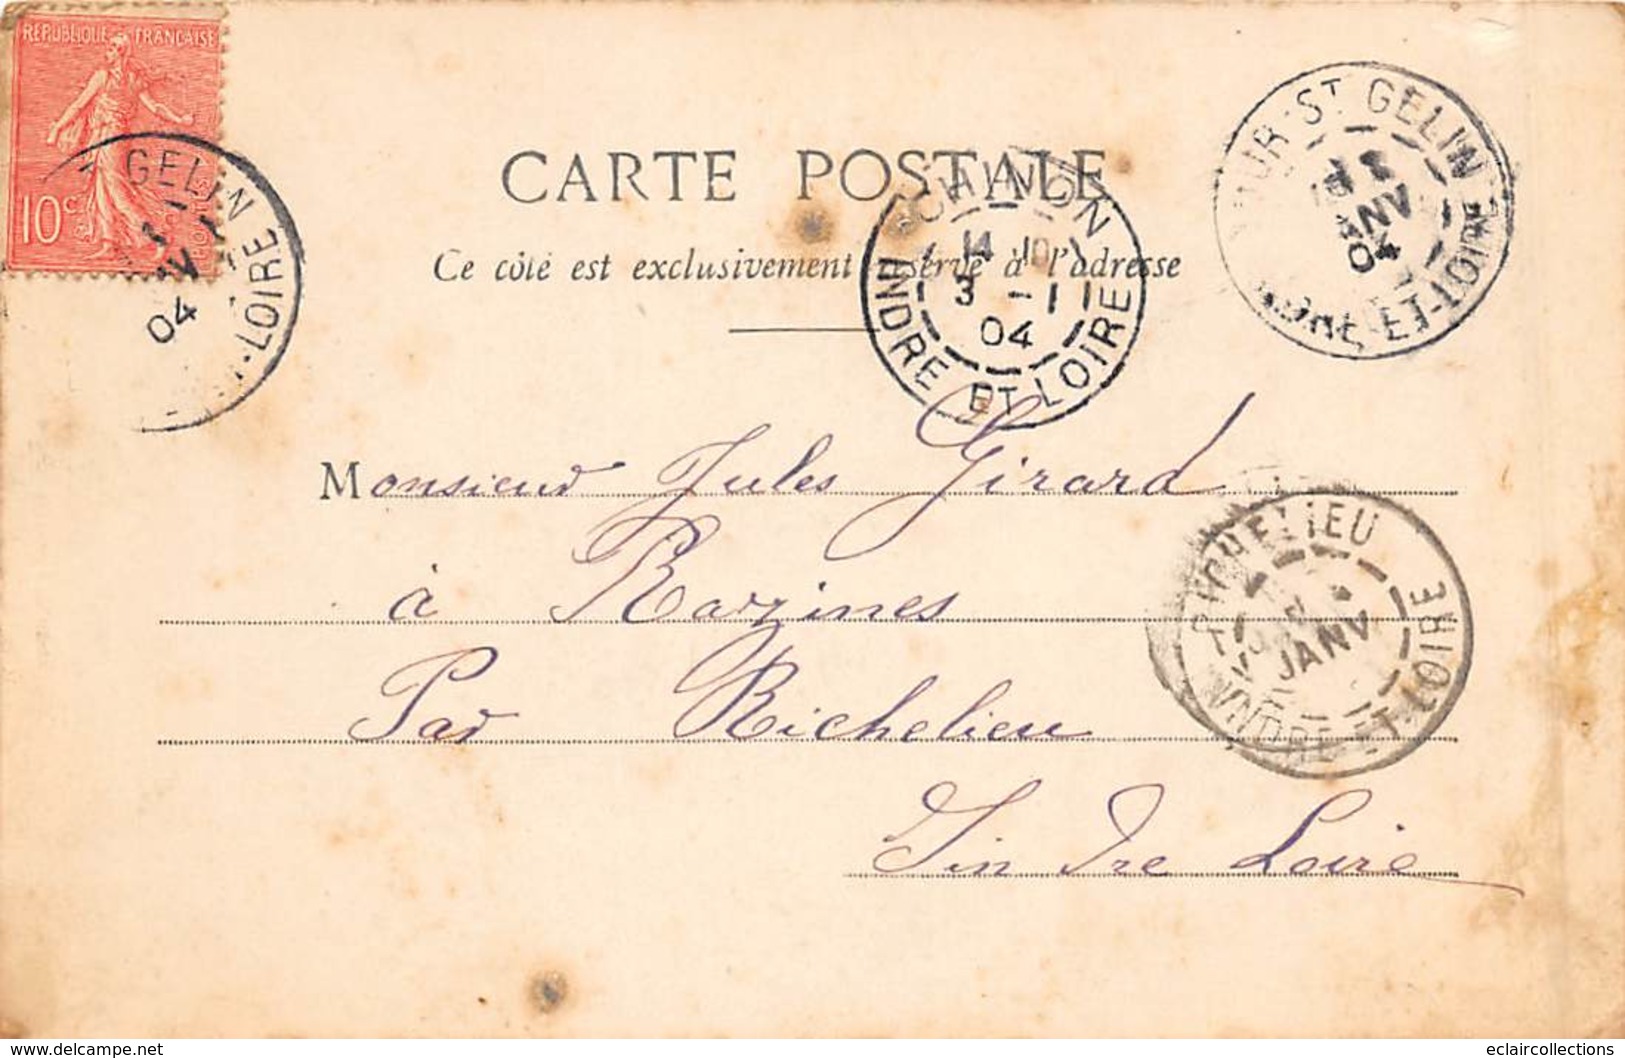 REPUBLIQUE FRANÇAISE
10c
GELIN
04
LOIRE
CARTE POSTALE
Ce côté est exclusivement réservé à l'adresse
CHINON
14 10
3 - 1
04
INDRE ET LOIRE
ST GELIN
JANV
04
ET-LOIRE
Monsieur Jules Girard
à Razines
Par Richelieu
Indre Loire
RICHELIEU
JANV
INDRE-ET-LOIRE
www.delcampe.net
eclaircollections